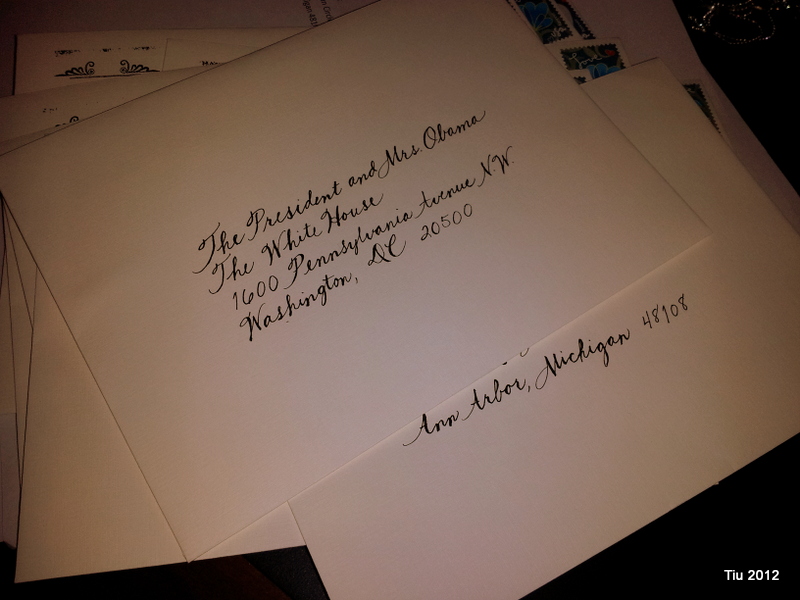 The President and Mrs. Obama
The White House
1600 Pennsylvania Avenue N.W.
Washington, DC 20500
Ann Arbor, Michigan 48108
Tiu 2012